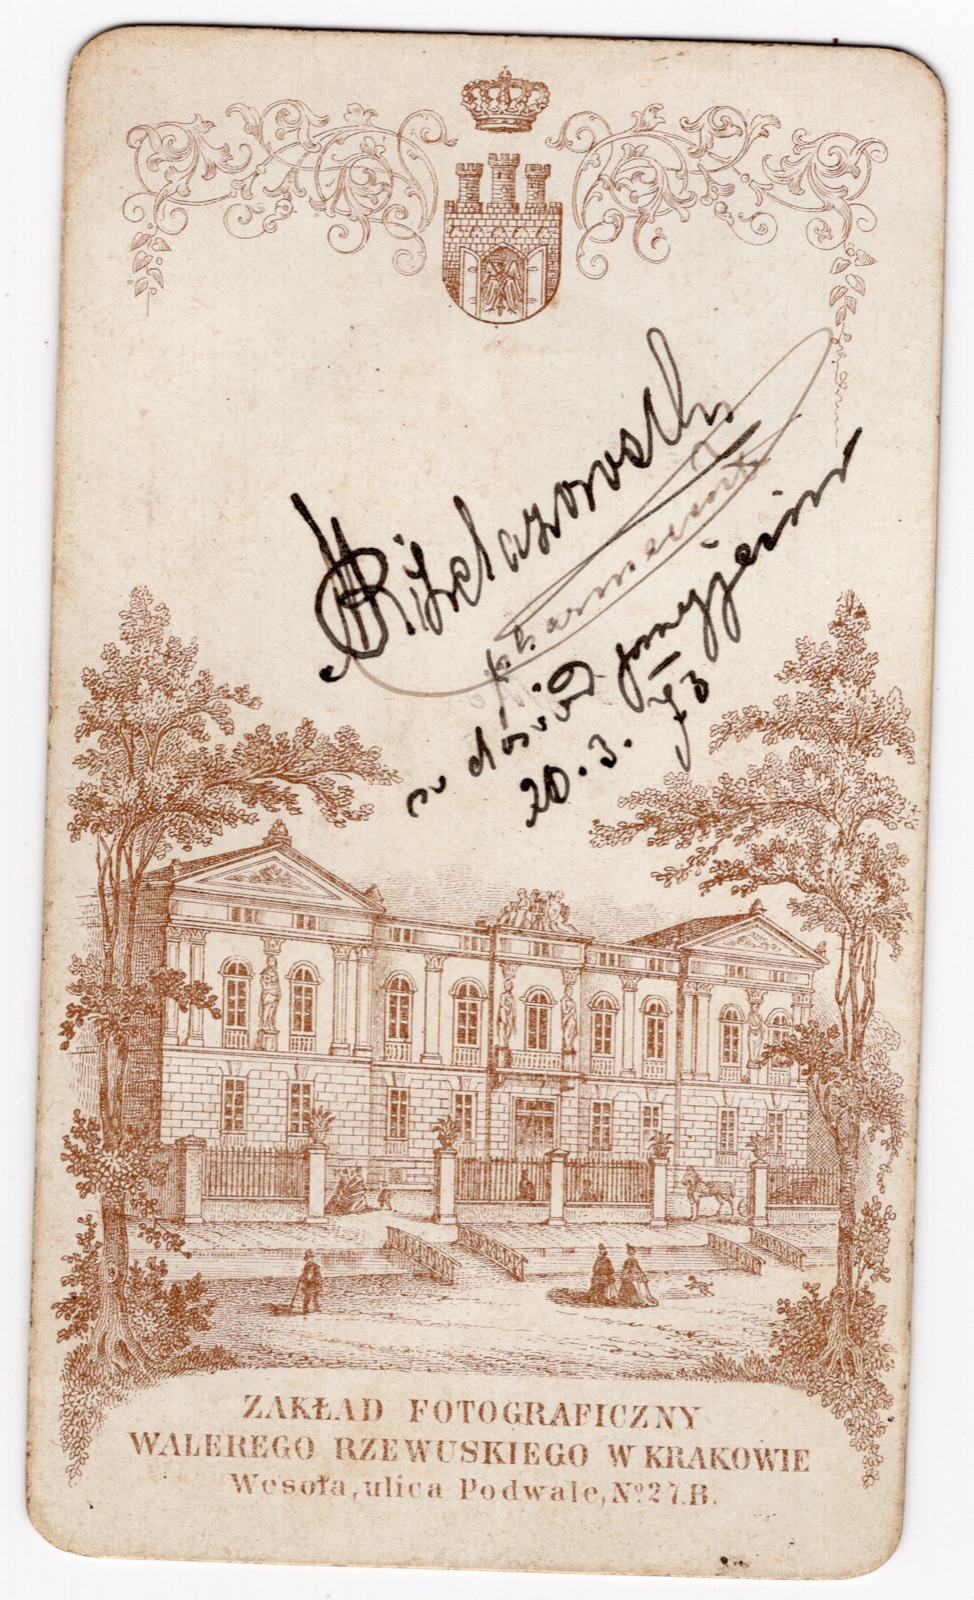 pharmaceut
w dowód przyjaźni
20. 3. 73
ZAKŁAD FOTOGRAFICZNY
WALEREGO RZEWUSKIEGO W KRAKOWIE
Wesoła, ulica Podwale, No 27.B.